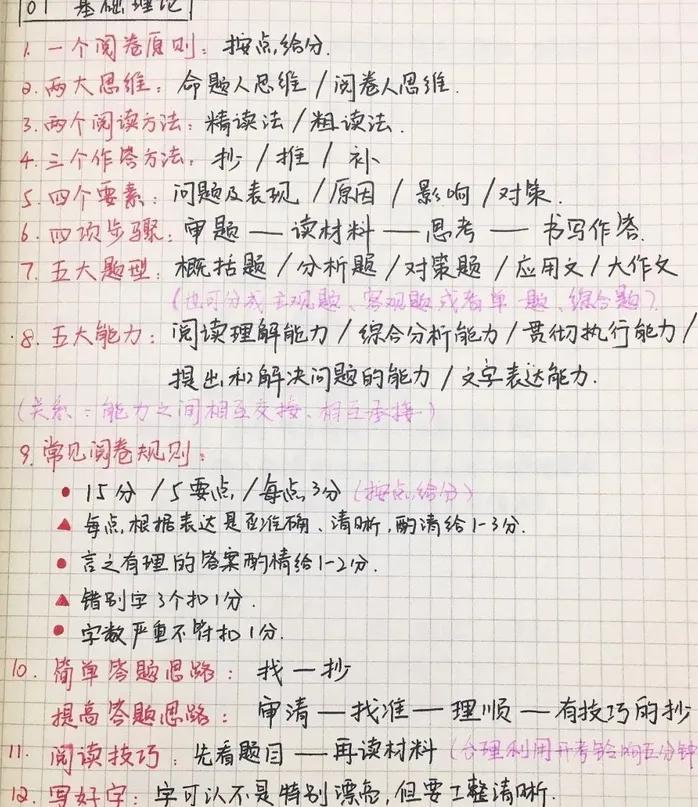 01 基础理论
1. 一个阅卷原则：按点给分.
2. 两大思维：命题人思维 / 阅卷人思维.
3. 两个阅读方法：精读法 / 粗读法.
4. 三个作答方法：抄 / 推 / 补
5. 四个要素：问题及表现 / 原因 / 影响 / 对策.
6. 四项步骤：审题 — 读材料 — 思考 — 书写作答.
7. 五大题型：概括题 / 分析题 / 对策题 / 应用文 / 大作文
(也可分成主观题、客观题或者单一题、综合题).
8. 五大能力：阅读理解能力 / 综合分析能力 / 贯彻执行能力 /
提出和解决问题的能力 / 文字表达能力.
(关系：能力之间相互交接、相互承接.)
9. 常见阅卷规则：
• 15分 / 5要点 / 每点3分 (按点给分)
▲ 每点根据表达是否准确、清晰,酌情给1-3分.
• 言之有理的答案酌情给1-2分.
▲ 错别字3个扣1分.
• 字数严重不符扣1分.
10. 简单答题思路：找 — 抄
提高答题思路：审清 — 找准 — 理顺 — 有技巧的抄
11. 阅读技巧：先看题目 — 再读材料 (合理利用开考铃响五分钟
12. 写好字：字可以不是特别漂亮,但要工整清晰.